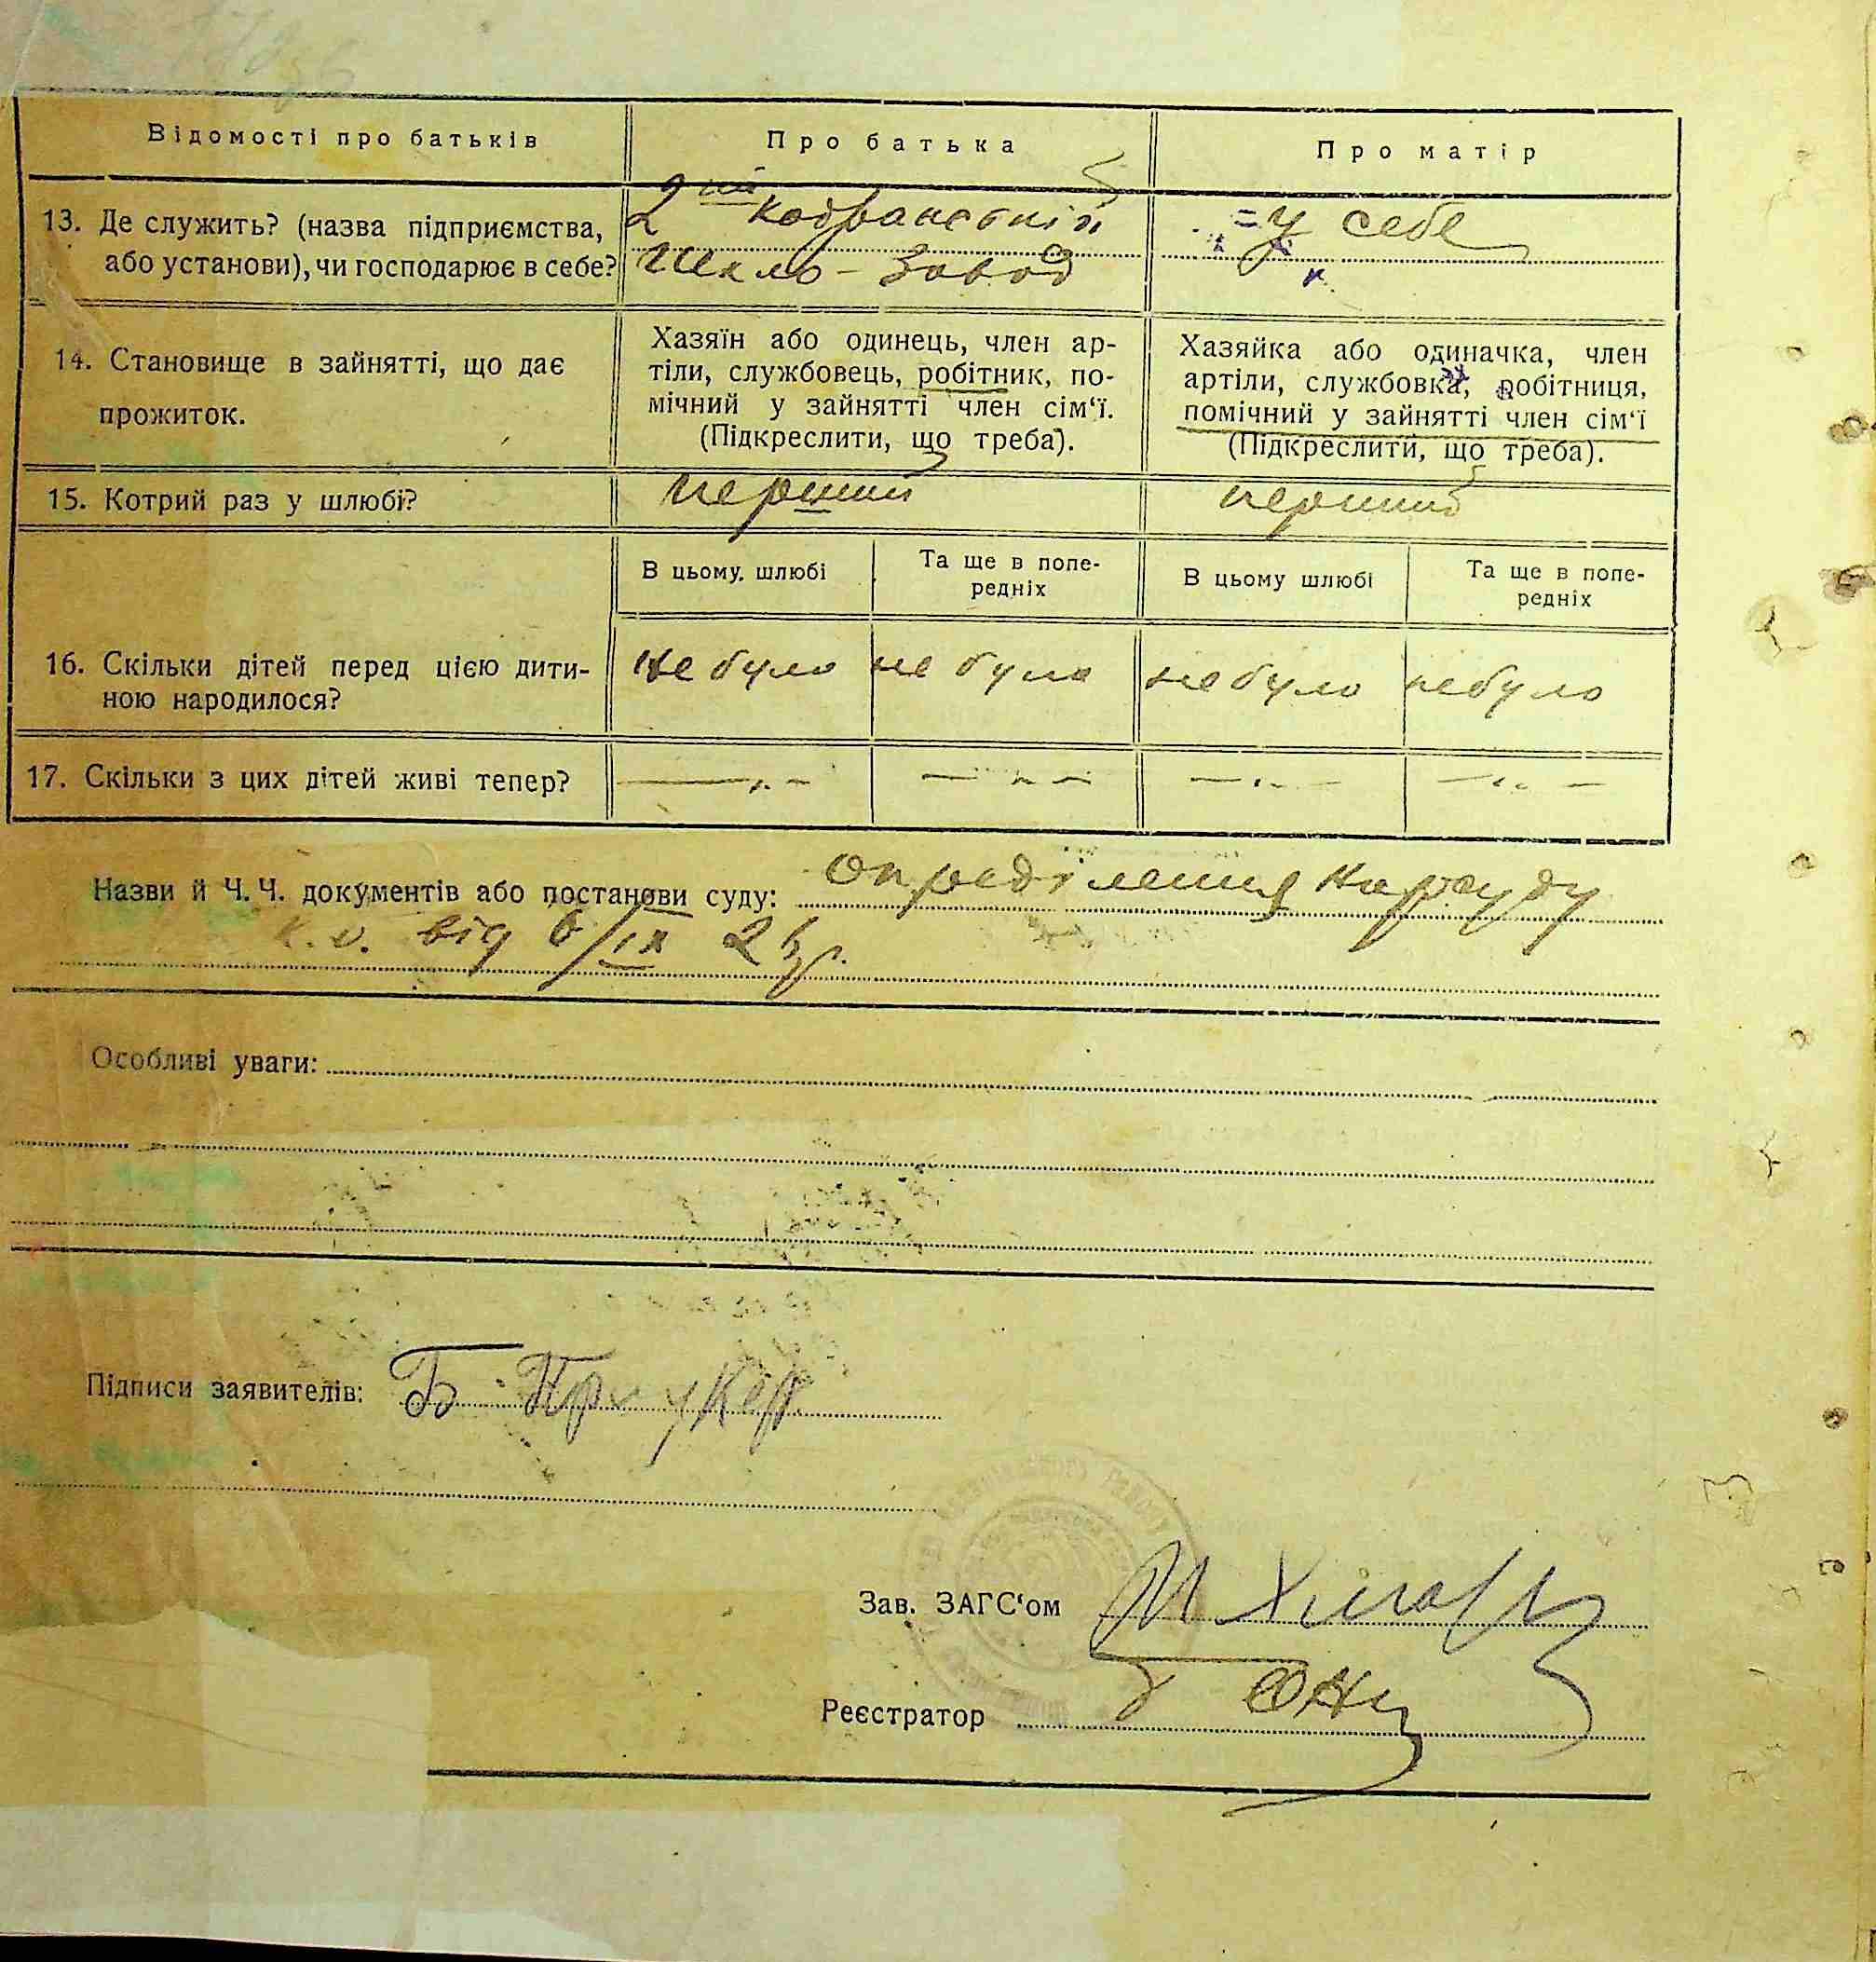 Відомості про батьків
Про батька
Про матір
13. Де служить? (назва підприємства,
або установи), чи господарює в себе?
2
Шкло - Завод
у себе
14. Становище в зайнятті, що дає
прожиток.
Хазяїн або одинець, член ар-
тіли, службовець, робітник, по-
мічний у зайнятті член сім‘ї.
(Підкреслити, що треба).
Хазяйка або одиначка, член
артіли, службовка, робітниця,
помічний у зайнятті член сім‘ї
(Підкреслити, що треба).
15. Котрий раз у шлюбі?
перший
перший
В цьому шлюбі
Та ще в попе-
редніх
В цьому шлюбі
Та ще в попе-
редніх
16. Скільки дітей перед цією дити-
ною народилося?
не було
не було
не було
небуло
17. Скільки з цих дітей живі тепер?
Назви й Ч. Ч. документів або постанови суду: Нарсуду
від 6/IX
Особливі уваги:
Підписи заявителів: Б
Зав. ЗАГС‘ом
Реєстратор